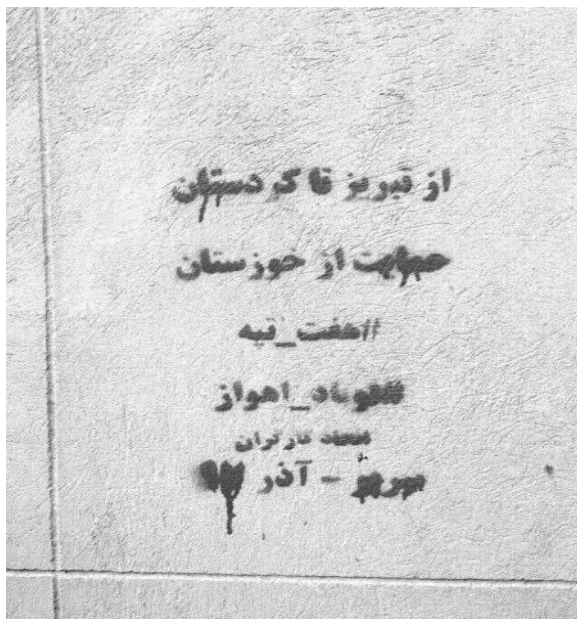 از تبریز تا کردستان
حمایت از خوزستان
#هفت_تپه
#فولاد_اهواز
اتحاد کارگران
تبریز - آذر ۹۷